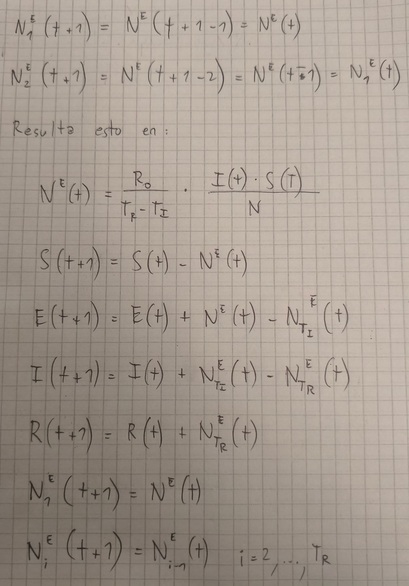 N₁ᴱ(t+1) = Nᴱ(t+1-1) = Nᴱ(t)
N₂ᴱ(t+1) = Nᴱ(t+1-2) = Nᴱ(t-1) = N₁ᴱ(t)
Resulta esto en:
Nᴱ(t) = R₀ / (T_R - T_I) · I(t) · S(T) / N
S(t+1) = S(t) - Nᴱ(t)
E(t+1) = E(t) + Nᴱ(t) - N_{T_I}^E(t)
I(t+1) = I(t) + N_{T_I}^E(t) - N_{T_R}^E(t)
R(t+1) = R(t) + N_{T_R}^E(t)
N₁ᴱ(t+1) = Nᴱ(t)
N_i^E(t+1) = N_{i-1}^E(t) i = 2, ..., T_R